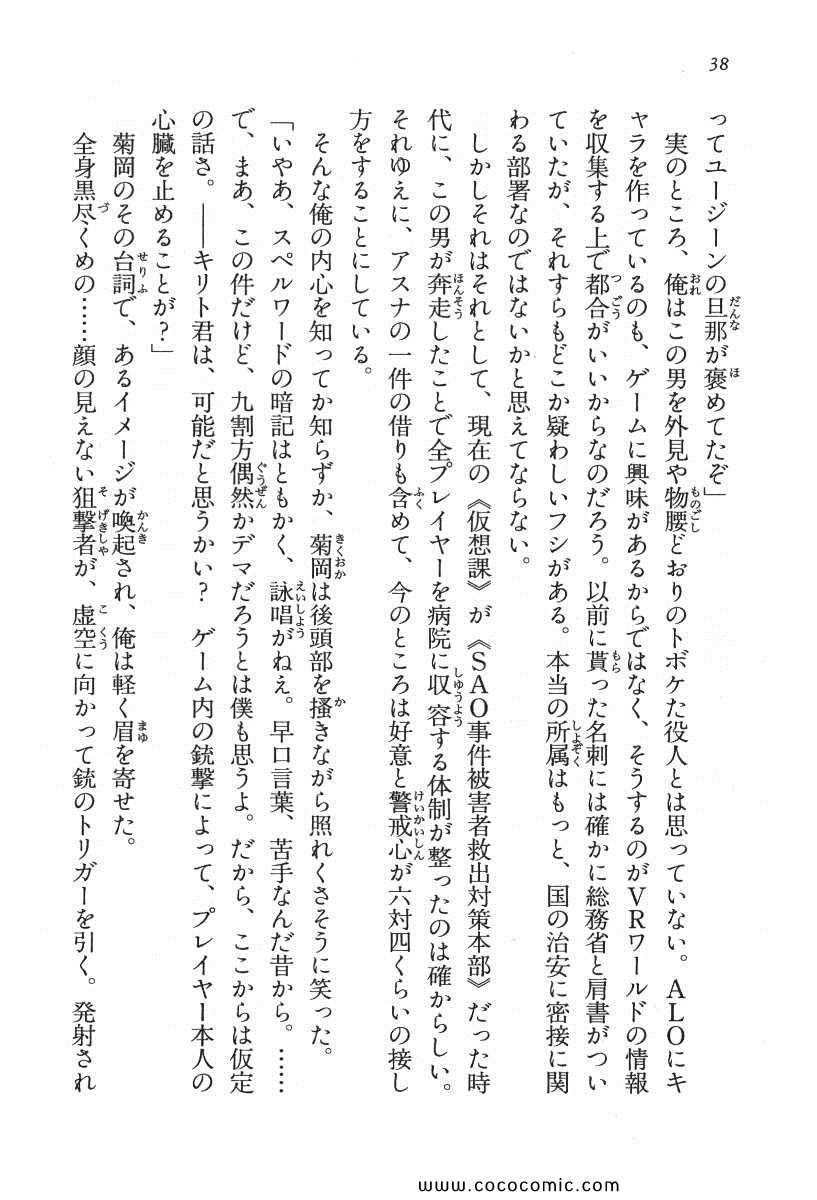 38
ってユージーンの旦那が褒めてたぞ」
　実のところ、俺はこの男を外見や物腰どおりのトボケた役人とは思っていない。ＡＬＯにキ
ャラを作っているのも、ゲームに興味があるからではなく、そうするのがＶＲワールドの情報
を収集する上で都合がいいからなのだろう。以前に貰った名刺には確かに総務省と肩書がつい
ていたが、それすらもどこか疑わしいフシがある。本当の所属はもっと、国の治安に密接に関
わる部署なのではないかと思えてならない。
　しかしそれはそれとして、現在の《仮想課》が《ＳＡＯ事件被害者救出対策本部》だった時
代に、この男が奔走したことで全プレイヤーを病院に収容する体制が整ったのは確からしい。
それゆえに、アスナの一件の借りも含めて、今のところは好意と警戒心が六対四くらいの接し
方をすることにしている。
　そんな俺の内心を知ってか知らずか、菊岡は後頭部を掻きながら照れくさそうに笑った。
「いやあ、スペルワードの暗記はともかく、詠唱がねえ。早口言葉、苦手なんだ昔から。……
で、まあ、この件だけど、九割方偶然かデマだろうとは僕も思うよ。だから、ここからは仮定
の話さ。――キリト君は、可能だと思うかい？　ゲーム内の銃撃によって、プレイヤー本人の
心臓を止めることが？」
　菊岡のその台詞で、あるイメージが喚起され、俺は軽く眉を寄せた。
　全身黒尽くめの……顔の見えない狙撃者が、虚空に向かって銃のトリガーを引く。発射され
www.cococomic.com